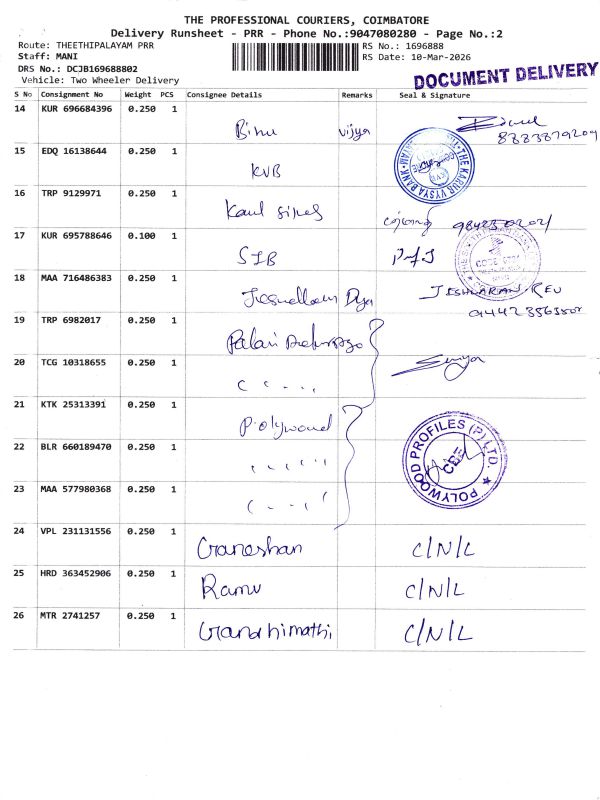 THE PROFESSIONAL COURIERS, COIMBATORE
Delivery Runsheet - PRR - Phone No.:9047080280 - Page No.:2
Route: THEETHIPALAYAM PRR
RS No.: 1696888
Staff: MANI
RS Date: 10-Mar-2026
DRS No.: DCJB169688802
Vehicle: Two Wheeler Delivery
DOCUMENT DELIVERY
S No Consignment No Weight PCS Consignee Details Remarks Seal & Signature
14 KUR 696684396 0.250 1 Binu vijya
15 EDQ 16138644 0.250 1 KVB
16 TRP 9129971 0.250 1
17 KUR 695788646 0.100 1 SIB
CODE
18 MAA 716486383 0.250 1
19 TRP 6982017 0.250 1 Palani
20 TCG 10318655 0.250 1
21 KTK 25313391 0.250 1 Polywood
22 BLR 660189470 0.250 1
POLYWOOD PROFILES (P) LTD.
CBE
23 MAA 577980368 0.250 1
24 VPL 231131556 0.250 1 Ganeshan C/N/L
25 HRD 363452906 0.250 1 Ramu C/N/L
26 MTR 2741257 0.250 1 Gandhimathi C/N/L